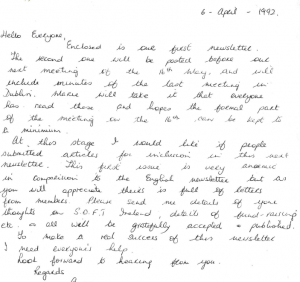 6 - April - 1992.
Hello Everyone,
Enclosed is our first newsletter.
The second one will be posted before our
next meeting of the 16th May, and will
include minutes of the last meeting in
Dublin. will take it that everyone
has read these and hopes the formal part
of the meeting on the 16th can be kept to
a minimum.
At this stage I would like if people
submitted articles for inclusion in this next
newsletter. This first issue is very anaemic
in comparison to the English newsletter but as
you will appreciate theirs is full of letters
from members. Please send me details of your
thoughts on S.O.F.T Ireland, details of fund-raising
etc - all will be gratefully accepted + published.
To make a real success of this newsletter
I need everyone's help.
Look forward to hearing from you.
Regards